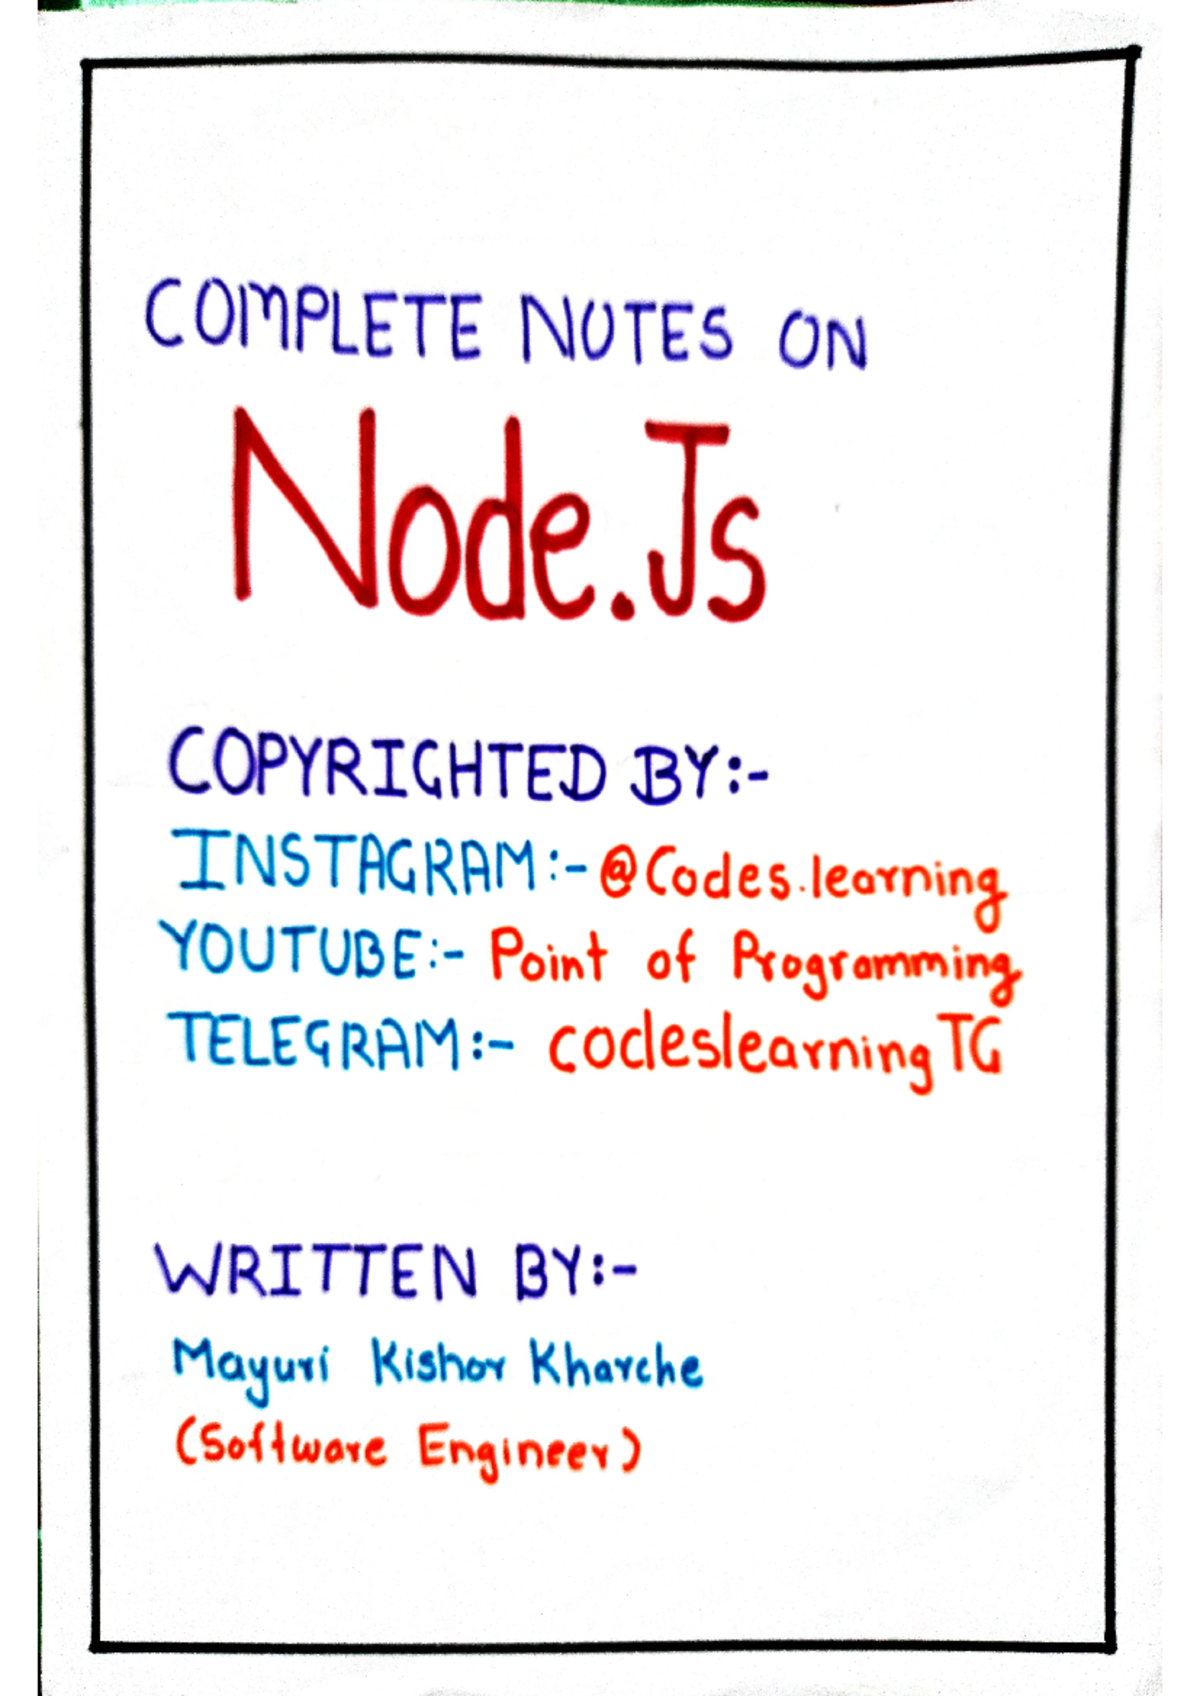 COMPLETE NOTES ON
Node.Js
COPYRIGHTED BY:-
INSTAGRAM:- @Codes.learning
YOUTUBE:- Point of Programming
TELEGRAM:- codeslearningTG
WRITTEN BY:-
Mayuri Kishor Kharche
(Software Engineer)